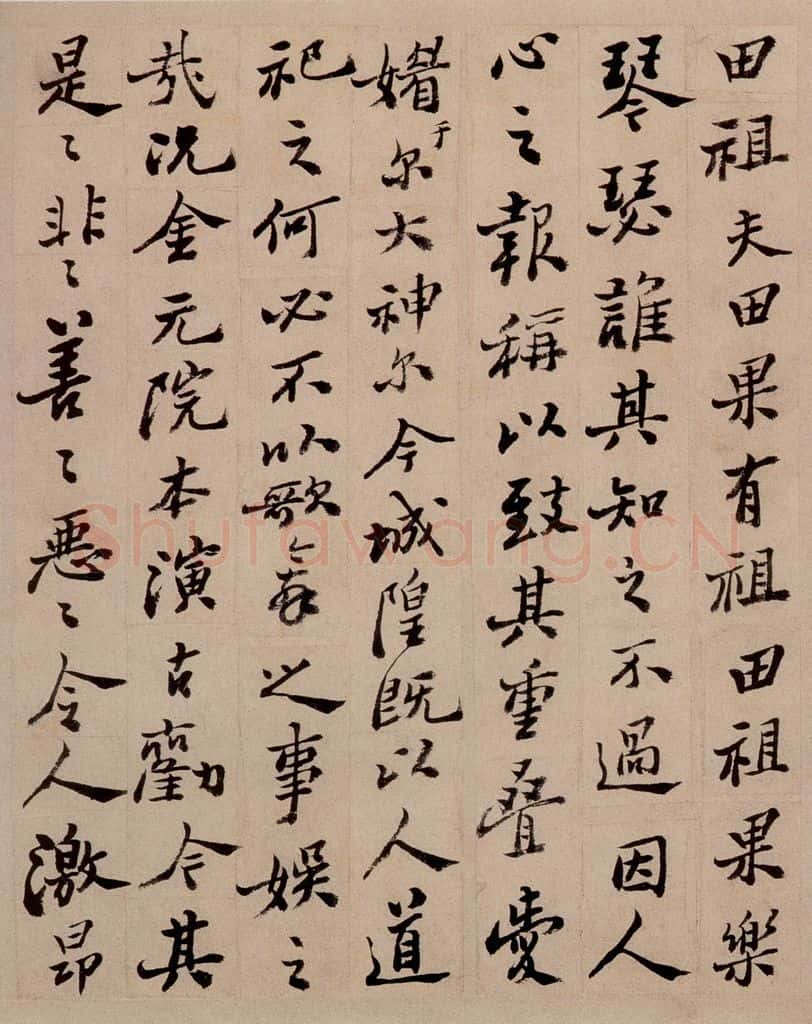 田祖夫田果有祖田祖果樂
琴瑟誰其知之不過因人
心之報稱以致其重疊愛
媚于尔大神尔今城隍既以人道
祀之何必不以歌舞之事娛之
哉況金元院本演古勸今其
是〻非〻善〻惡〻令人激昂
Shufawang.CN